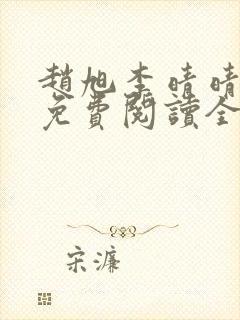 趙旭李晴晴
免費閱讀全
宋濂